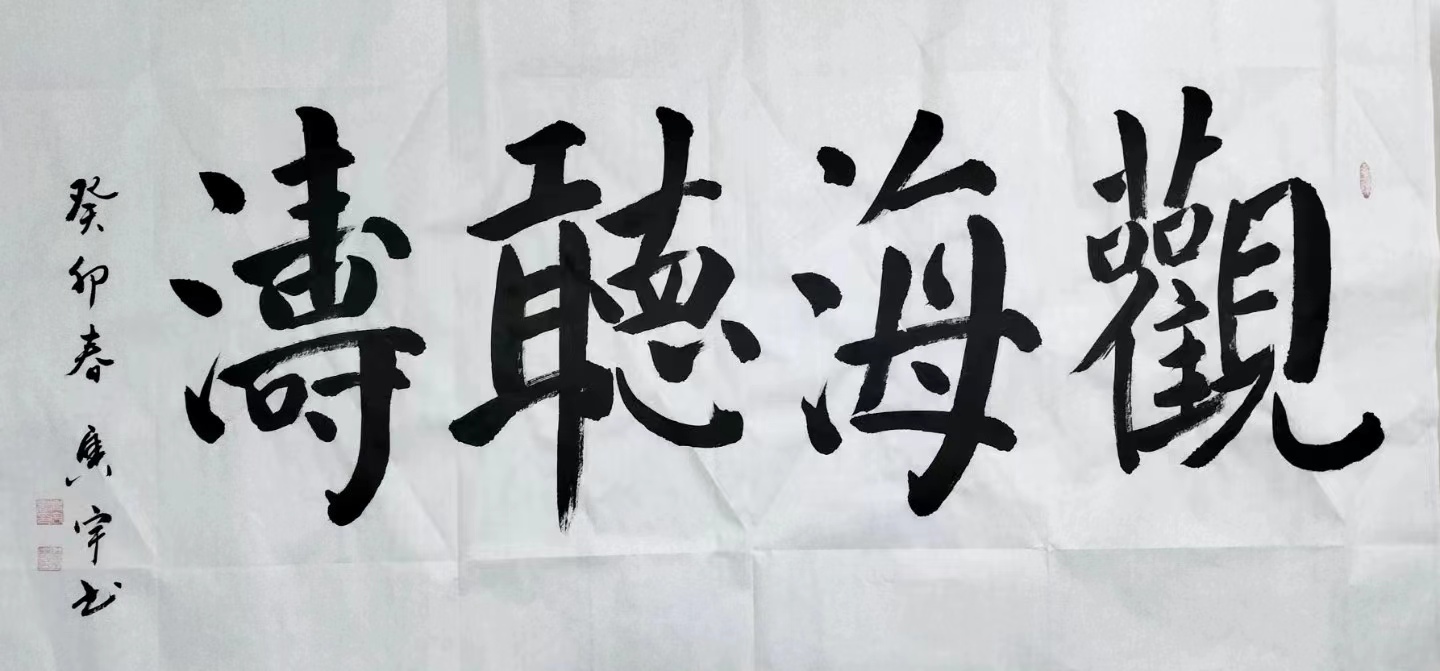 觀海聽濤
癸卯春 寅宇书